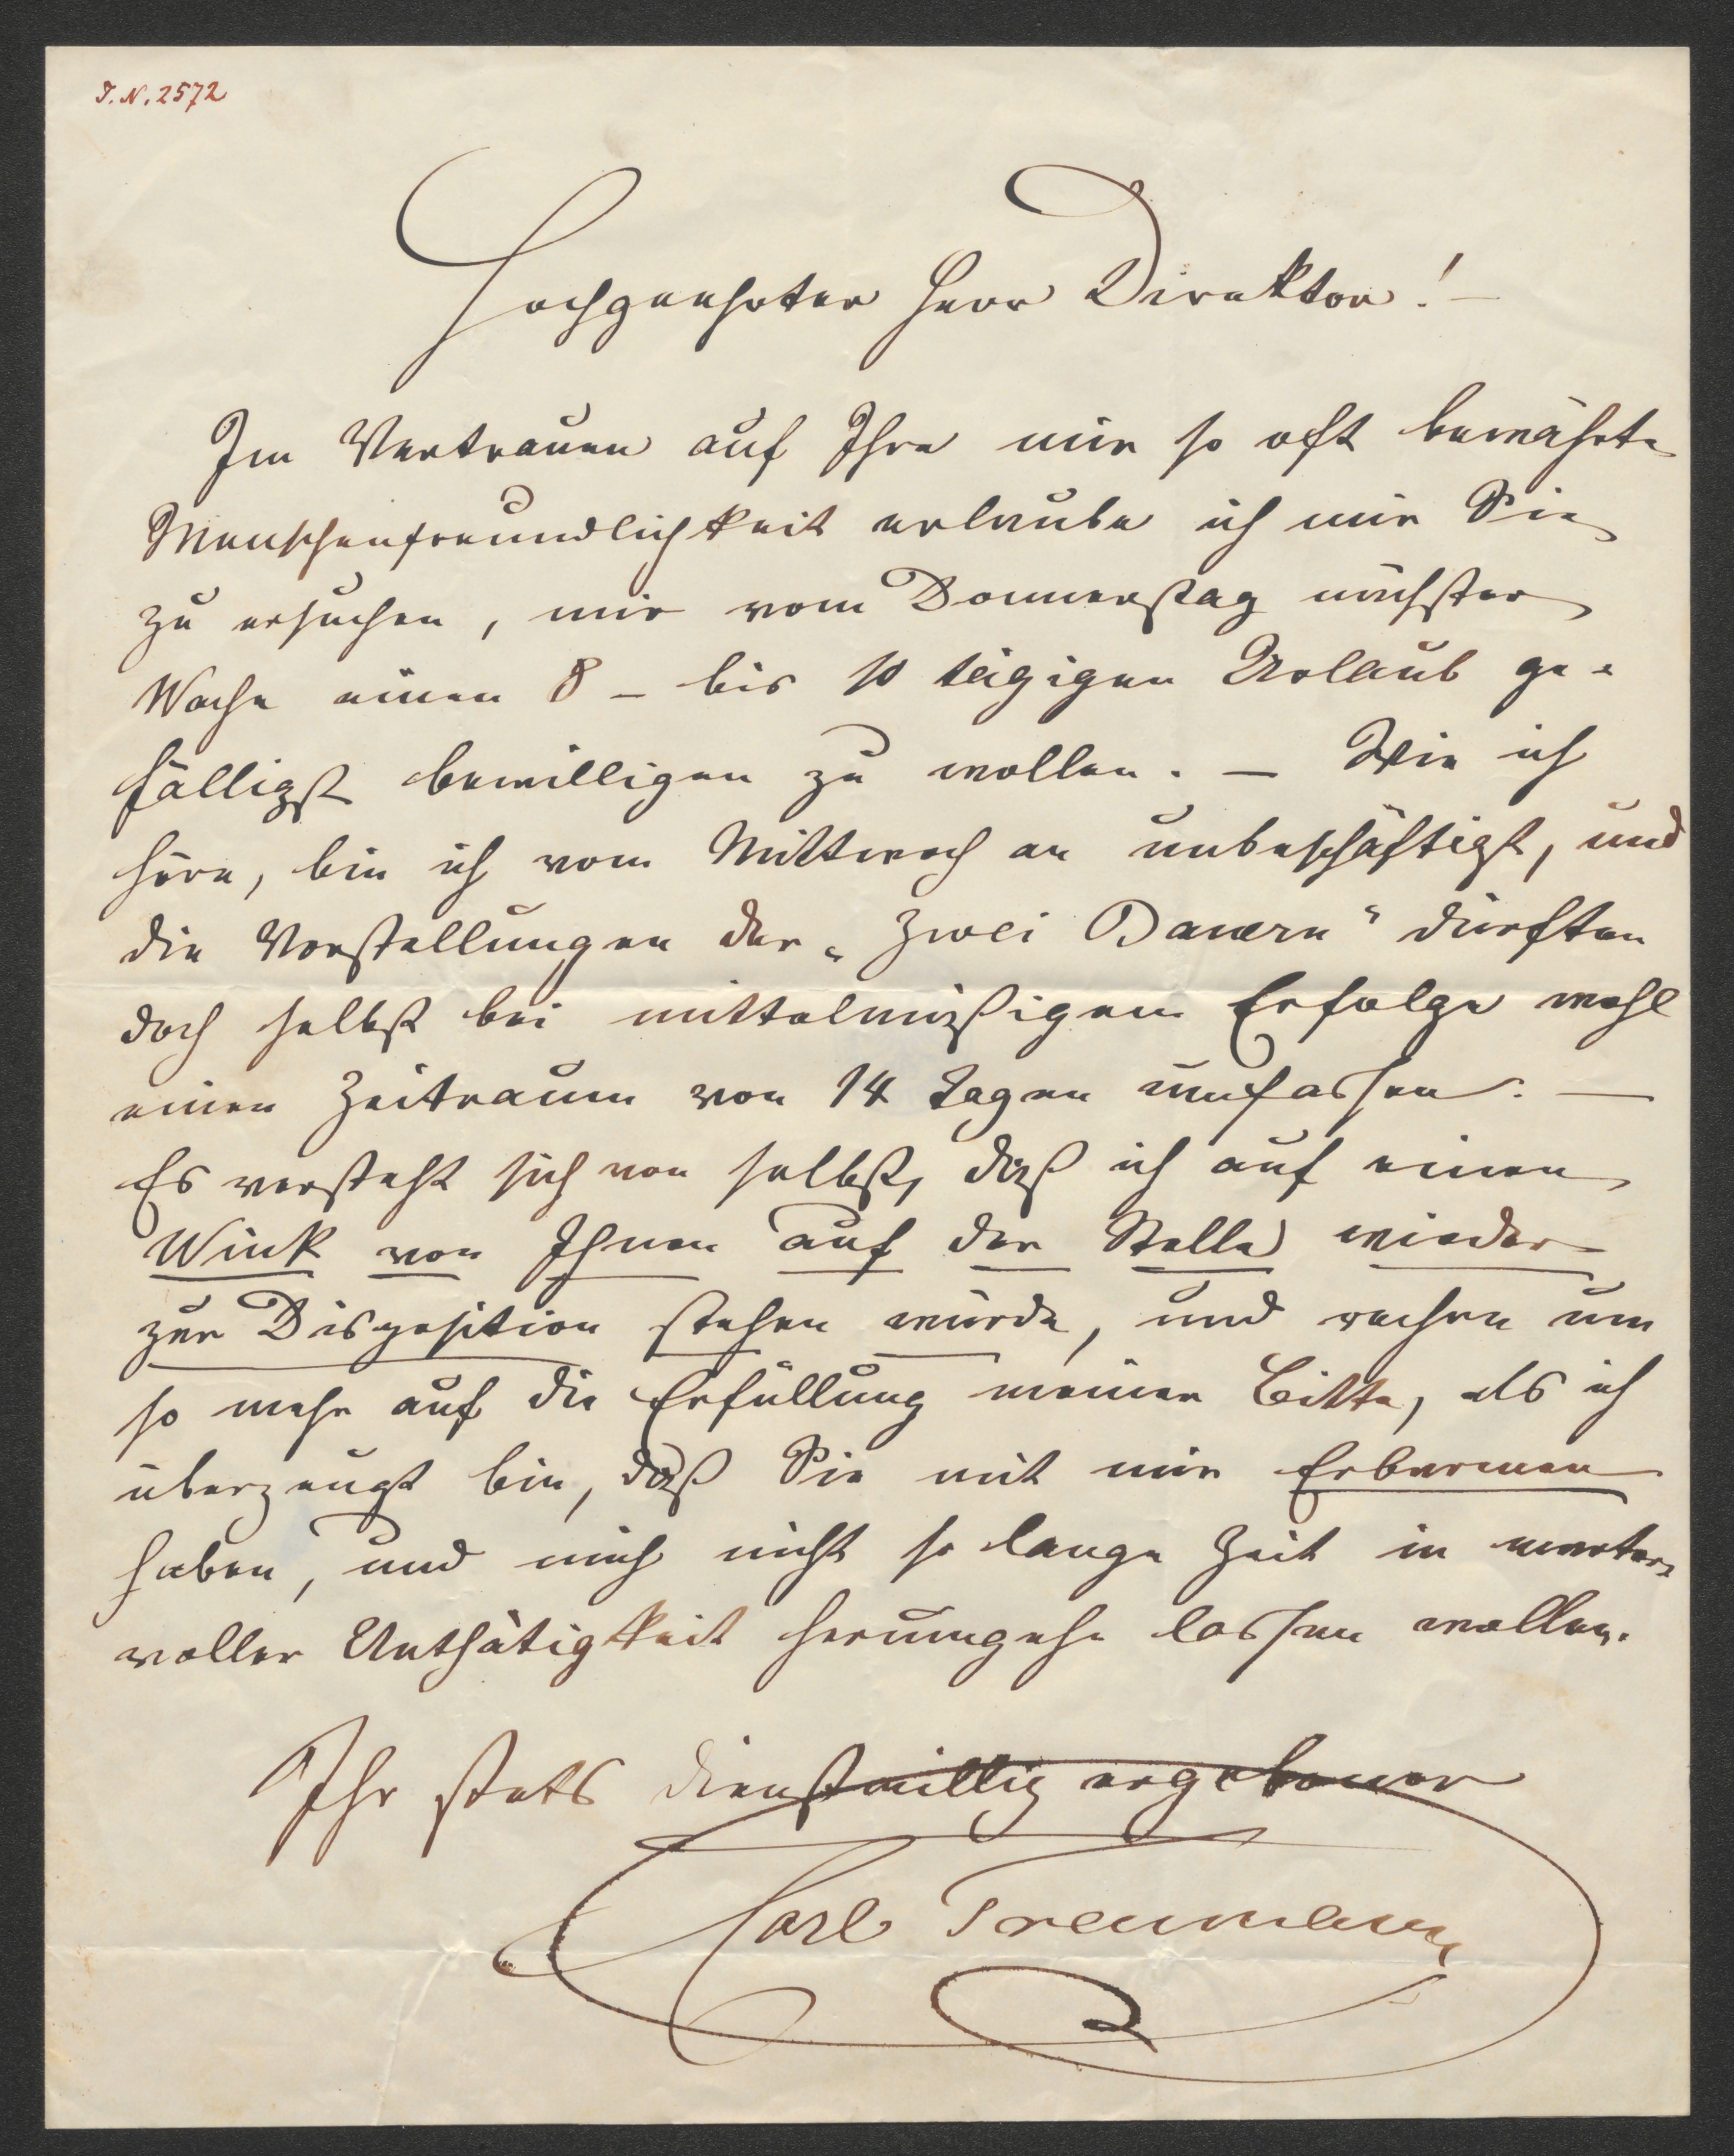 I.N. 2572
Hochgeehrter Herr Direktor! —
Im Vertrauen auf Ihre mir so oft bewährte
Menschenfreundlichkeit erlaube ich mir Sie
zu ersuchen, mir vom Donnerstag nächster
Woche einen 8 – bis 10 tägigen Urlaub ge-
fälligst bewilligen zu wollen. — Wie ich
höre, bin ich vom Mittwoch an unbeschäftigt, und
die Vorstellungen der „Zwei Bauern“ dürften
doch selbst bei mittelmäßigem Erfolge wohl
einen Zeitraum von 14 Tagen umfassen. —
Es versteht sich von selbst, daß ich auf einen
Wink von Ihnen auf der Stelle wieder
zur Disposition stehen würde, und rechne um
so mehr auf die Erfüllung meiner Bitte, als ich
überzeugt bin, daß Sie mit mir Erbarmen
haben, und mich nicht so lange Zeit in marter-
voller Unthätigkeit herumgehe lassen wollen.
Ihr stets dienstwillig ergebener
Carl Treumann